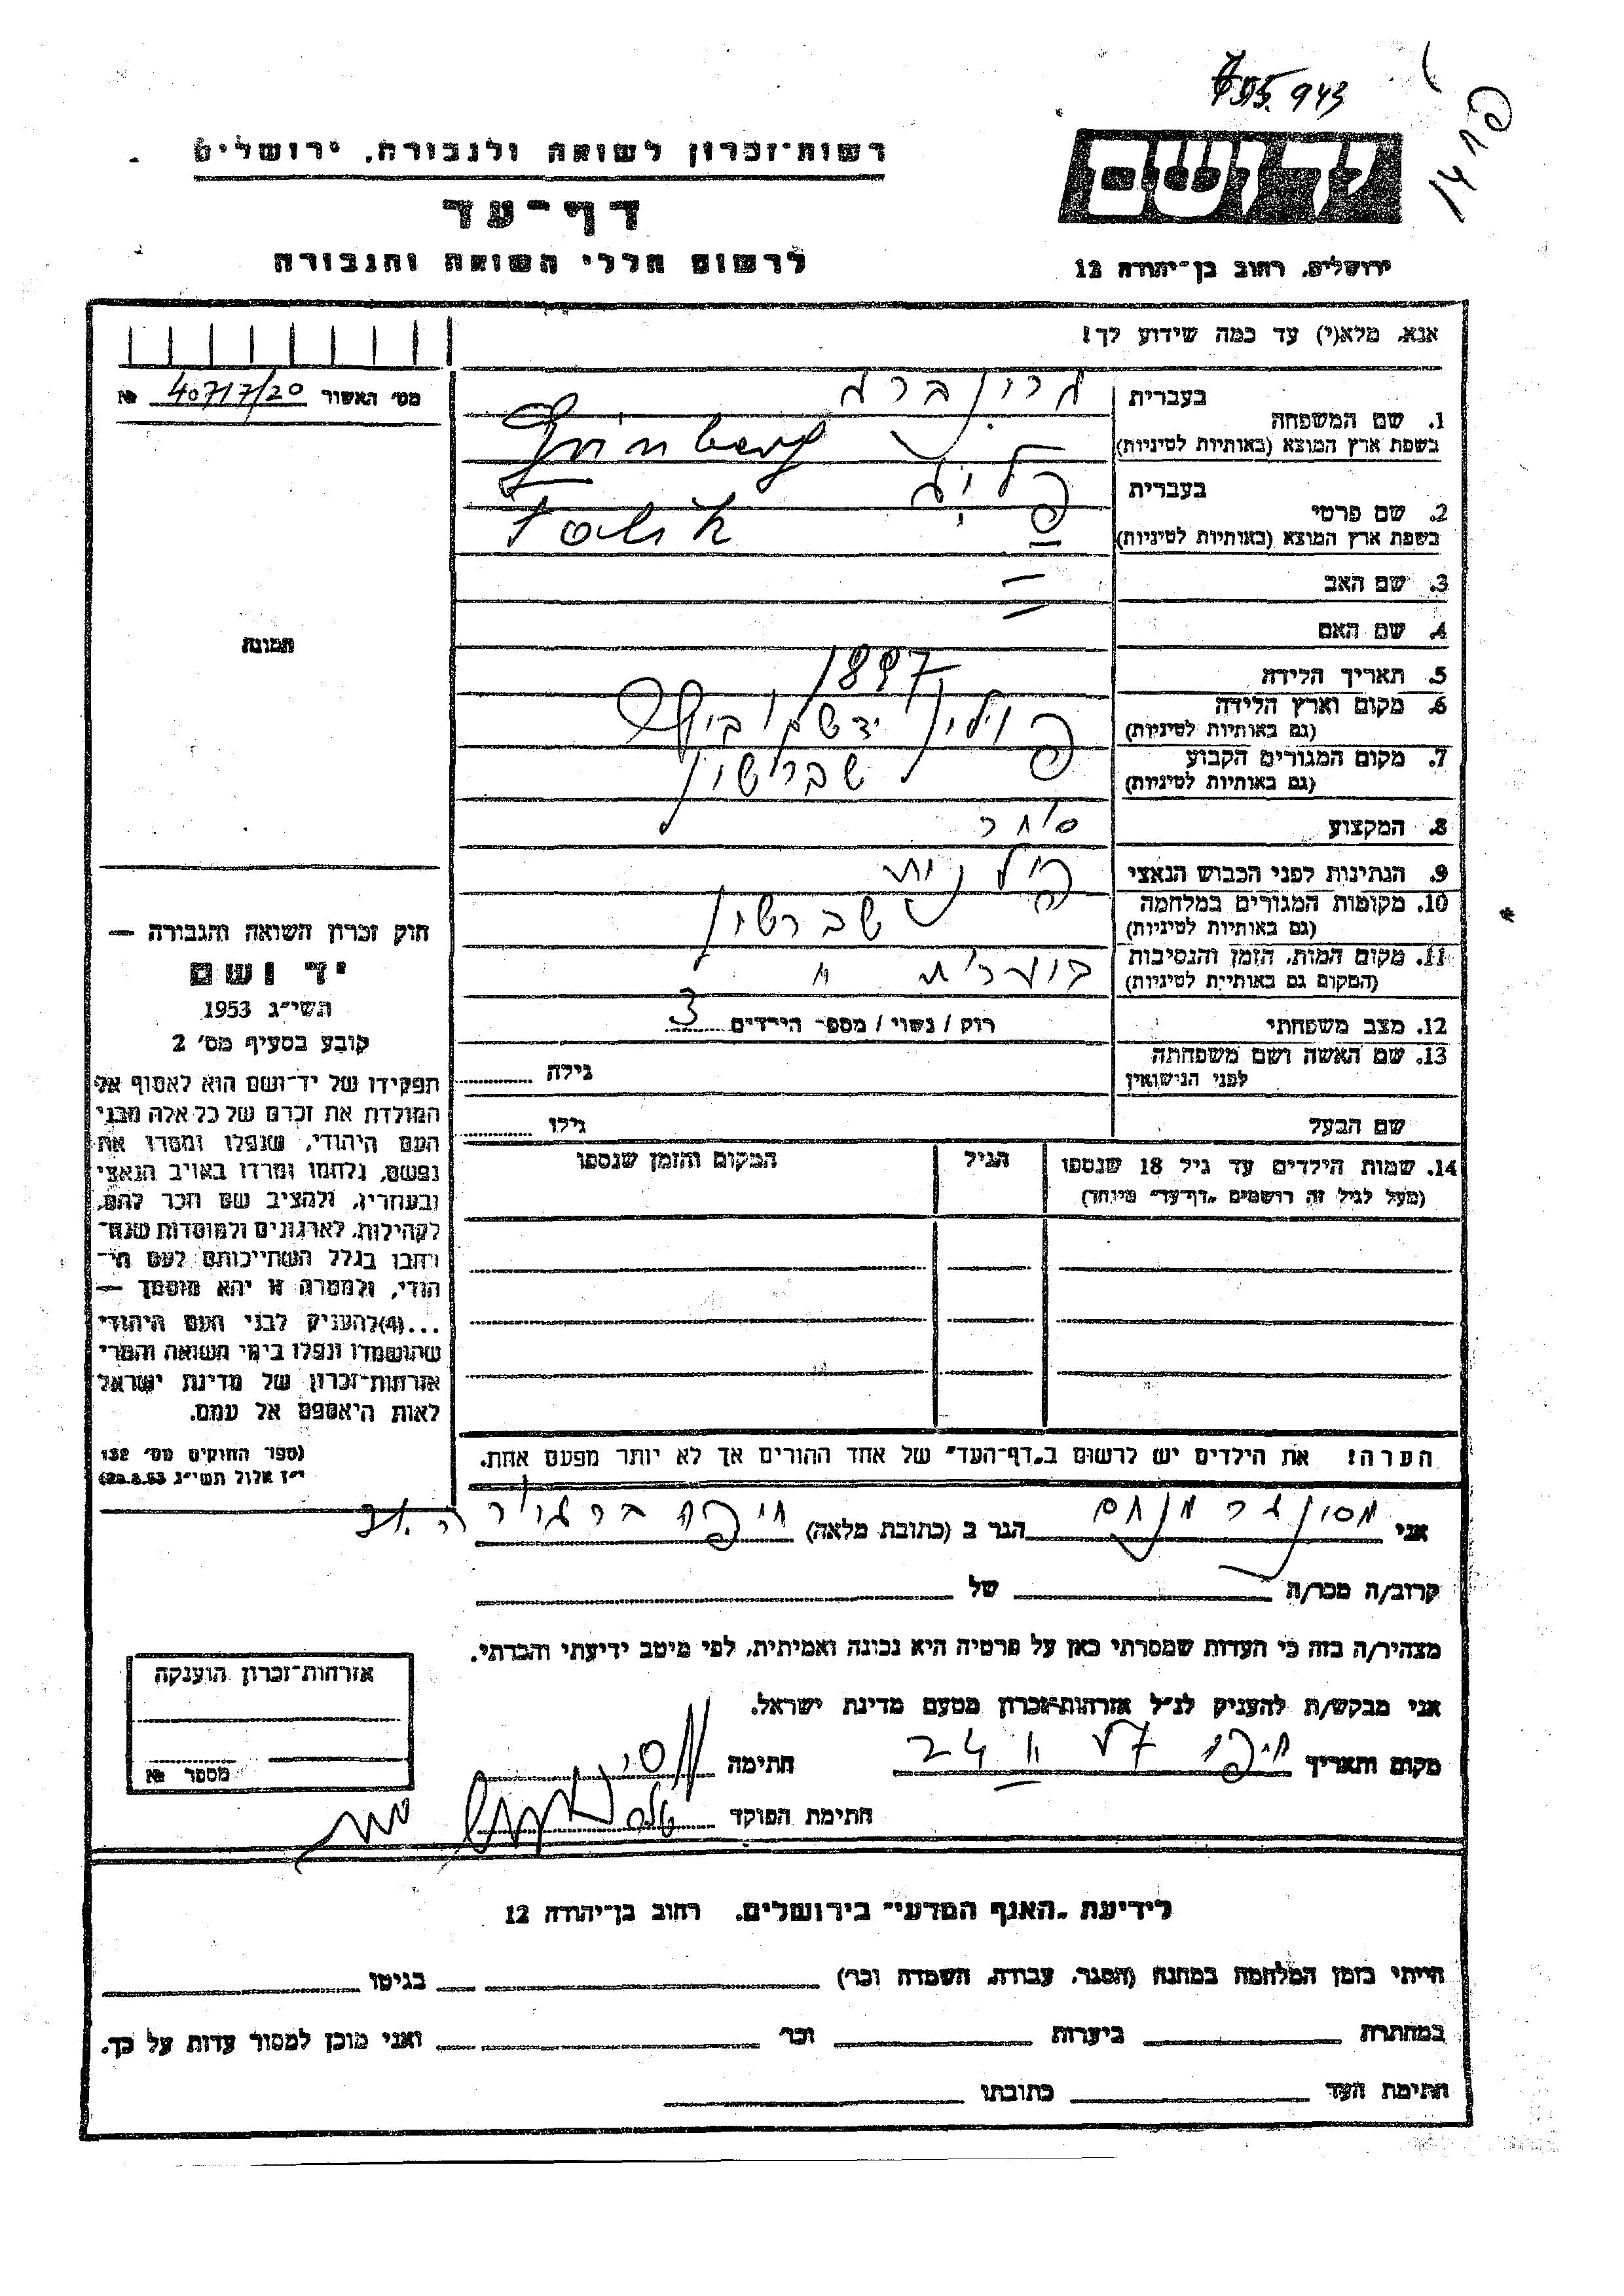 943
יד ושם
רשות־זכרון לשואה ולגבורה, ירושלים
דף־עד
לרשום חללי השואה והגבורה
ירושלים, רחוב בן־יהודה 12
אנא, מלא(י) עד כמה שידוע לך!
מס׳ האשור 40717/20 №
תמונה
בעברית גרינברג
1. שם המשפחה
בשפת ארץ המוצא (באותיות לטיניות) Grinberg
בעברית
2. שם פרטי
בשפת ארץ המוצא (באותיות לטיניות)
3. שם האב —
4. שם האם —
5. תאריך הלידה 1897
6. מקום וארץ הלידה פולין
(גם באותיות לטיניות)
7. מקום המגורים הקבוע שברשין
(גם באותיות לטיניות)
8. המקצוע סוחר
9. הנתינות לפני הכבוש הנאצי פולנית
10. מקומות המגורים במלחמה שברשין
(גם באותיות לטיניות)
11. מקום המות, הזמן והנסיבות
(המקום גם באותיות לטיניות)
12. מצב משפחתי רוק / נשוי / מספ׳ הילדים 3
13. שם האשה ושם משפחתה גילה
לפני הנישואין
שם הבעל גילו
14. שמות הילדים עד גיל 18 שנספו הגיל המקום והזמן שנספו
(מעל לגיל זה רושמים „דף־עד״ מיוחד)
חוק זכרון השואה והגבורה —
יד ושם
תשי״ג 1953
קובע בסעיף מס׳ 2
תפקידו של יד־ושם הוא לאסוף אל
המולדת את זכרם של כל אלה מבני
העם היהודי, שנפלו ומסרו את
נפשם, נלחמו ומרדו באויב הנאצי
ובעוזריו, ולהציב שם וזכר להם,
לקהילות, לארגונים ולמוסדות שנח־
רבו בגלל השתייכותם לעם הי־
הודי, ולמטרה זו יהא מוסמך —
...(4)להעניק לבני העם היהודי
שהושמדו ונפלו בימי השואה והמרי
אזרחות־זכרון של מדינת ישראל
לאות היאספם אל עמם.
(ספר החוקים מס׳ 132
י״ז אלול תשי״ג 28.8.53)
הערה! את הילדים יש לרשום ב„דף־העד״ של אחד ההורים אך לא יותר מפעם אחת.
אני מנחם הגר ב (כתובת מלאה) חיפה
קרוב/ה מכר/ה של
מצהיר/ה בזה כי העדות שמסרתי כאן על פרטיה היא נכונה ואמיתית, לפי מיטב ידיעתי והכרתי.
אני מבקש/ת להעניק לנ״ל אזרחות־זכרון מטעם מדינת ישראל.
מקום ותאריך חיפה 24 II 57 חתימה
חתימת הפוקד
אזרחות־זכרון הוענקה
מספר №
לידיעת „האגף המדעי״ בירושלים, רחוב בן־יהודה 12
הייתי בזמן המלחמה במחנה (הסגר, עבודה, השמדה וכו׳) בגיטו
במחתרת ביערות וכו׳ ואני מוכן למסור עדות על כך.
חתימת העד כתובתו